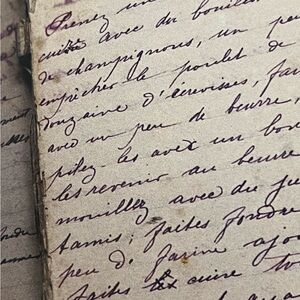 Prenez un
cuire avec du bouillon
de champignons, un peu
empêcher le poulet de
douzaine d'écrevisses, fai
avec un peu de beurre,
pilez-les avec un bon
les revenir au beurre
mouillez avec du ju
tamis; faites fondre
peu d. farine ajou
faites cuire to